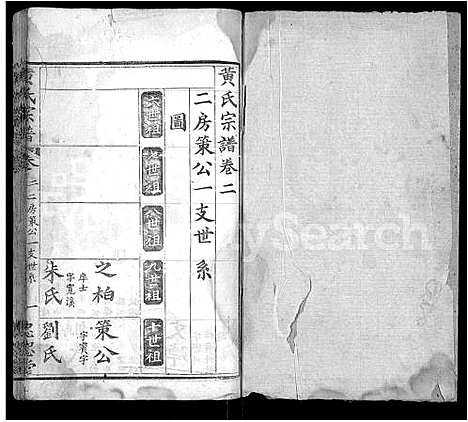 黃氏宗譜卷二
二房策公一支世系
圖
六世祖
七世祖
八世祖
九世祖
十世祖
之柏
庠士
字寬溪
朱氏
策公
字寰宇
劉氏
黃氏宗譜 卷二 二房策公一支世系 一
MySearch